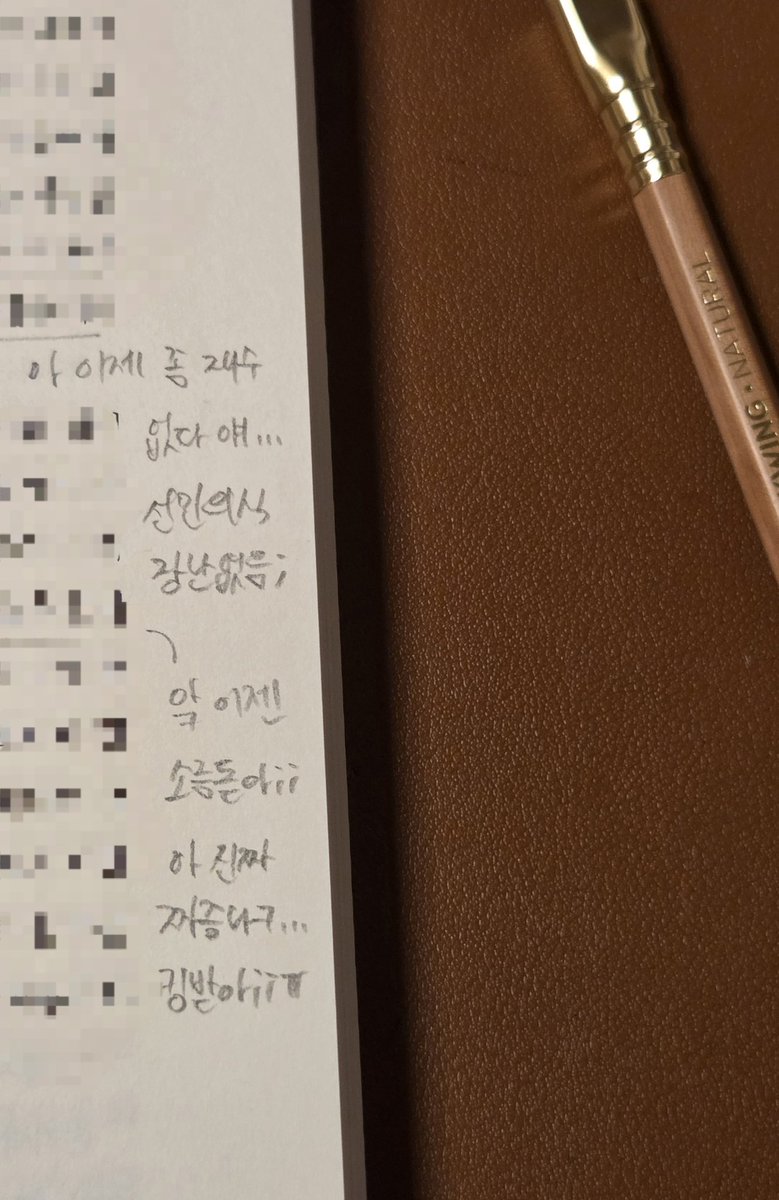 아 이제 좀 재수
없다 얘...
선민의식
장난없음;
악 이젠
소름돋아;;
아 진짜
짜증나구...
킹받아;;ㅠ
WING • NATURAL